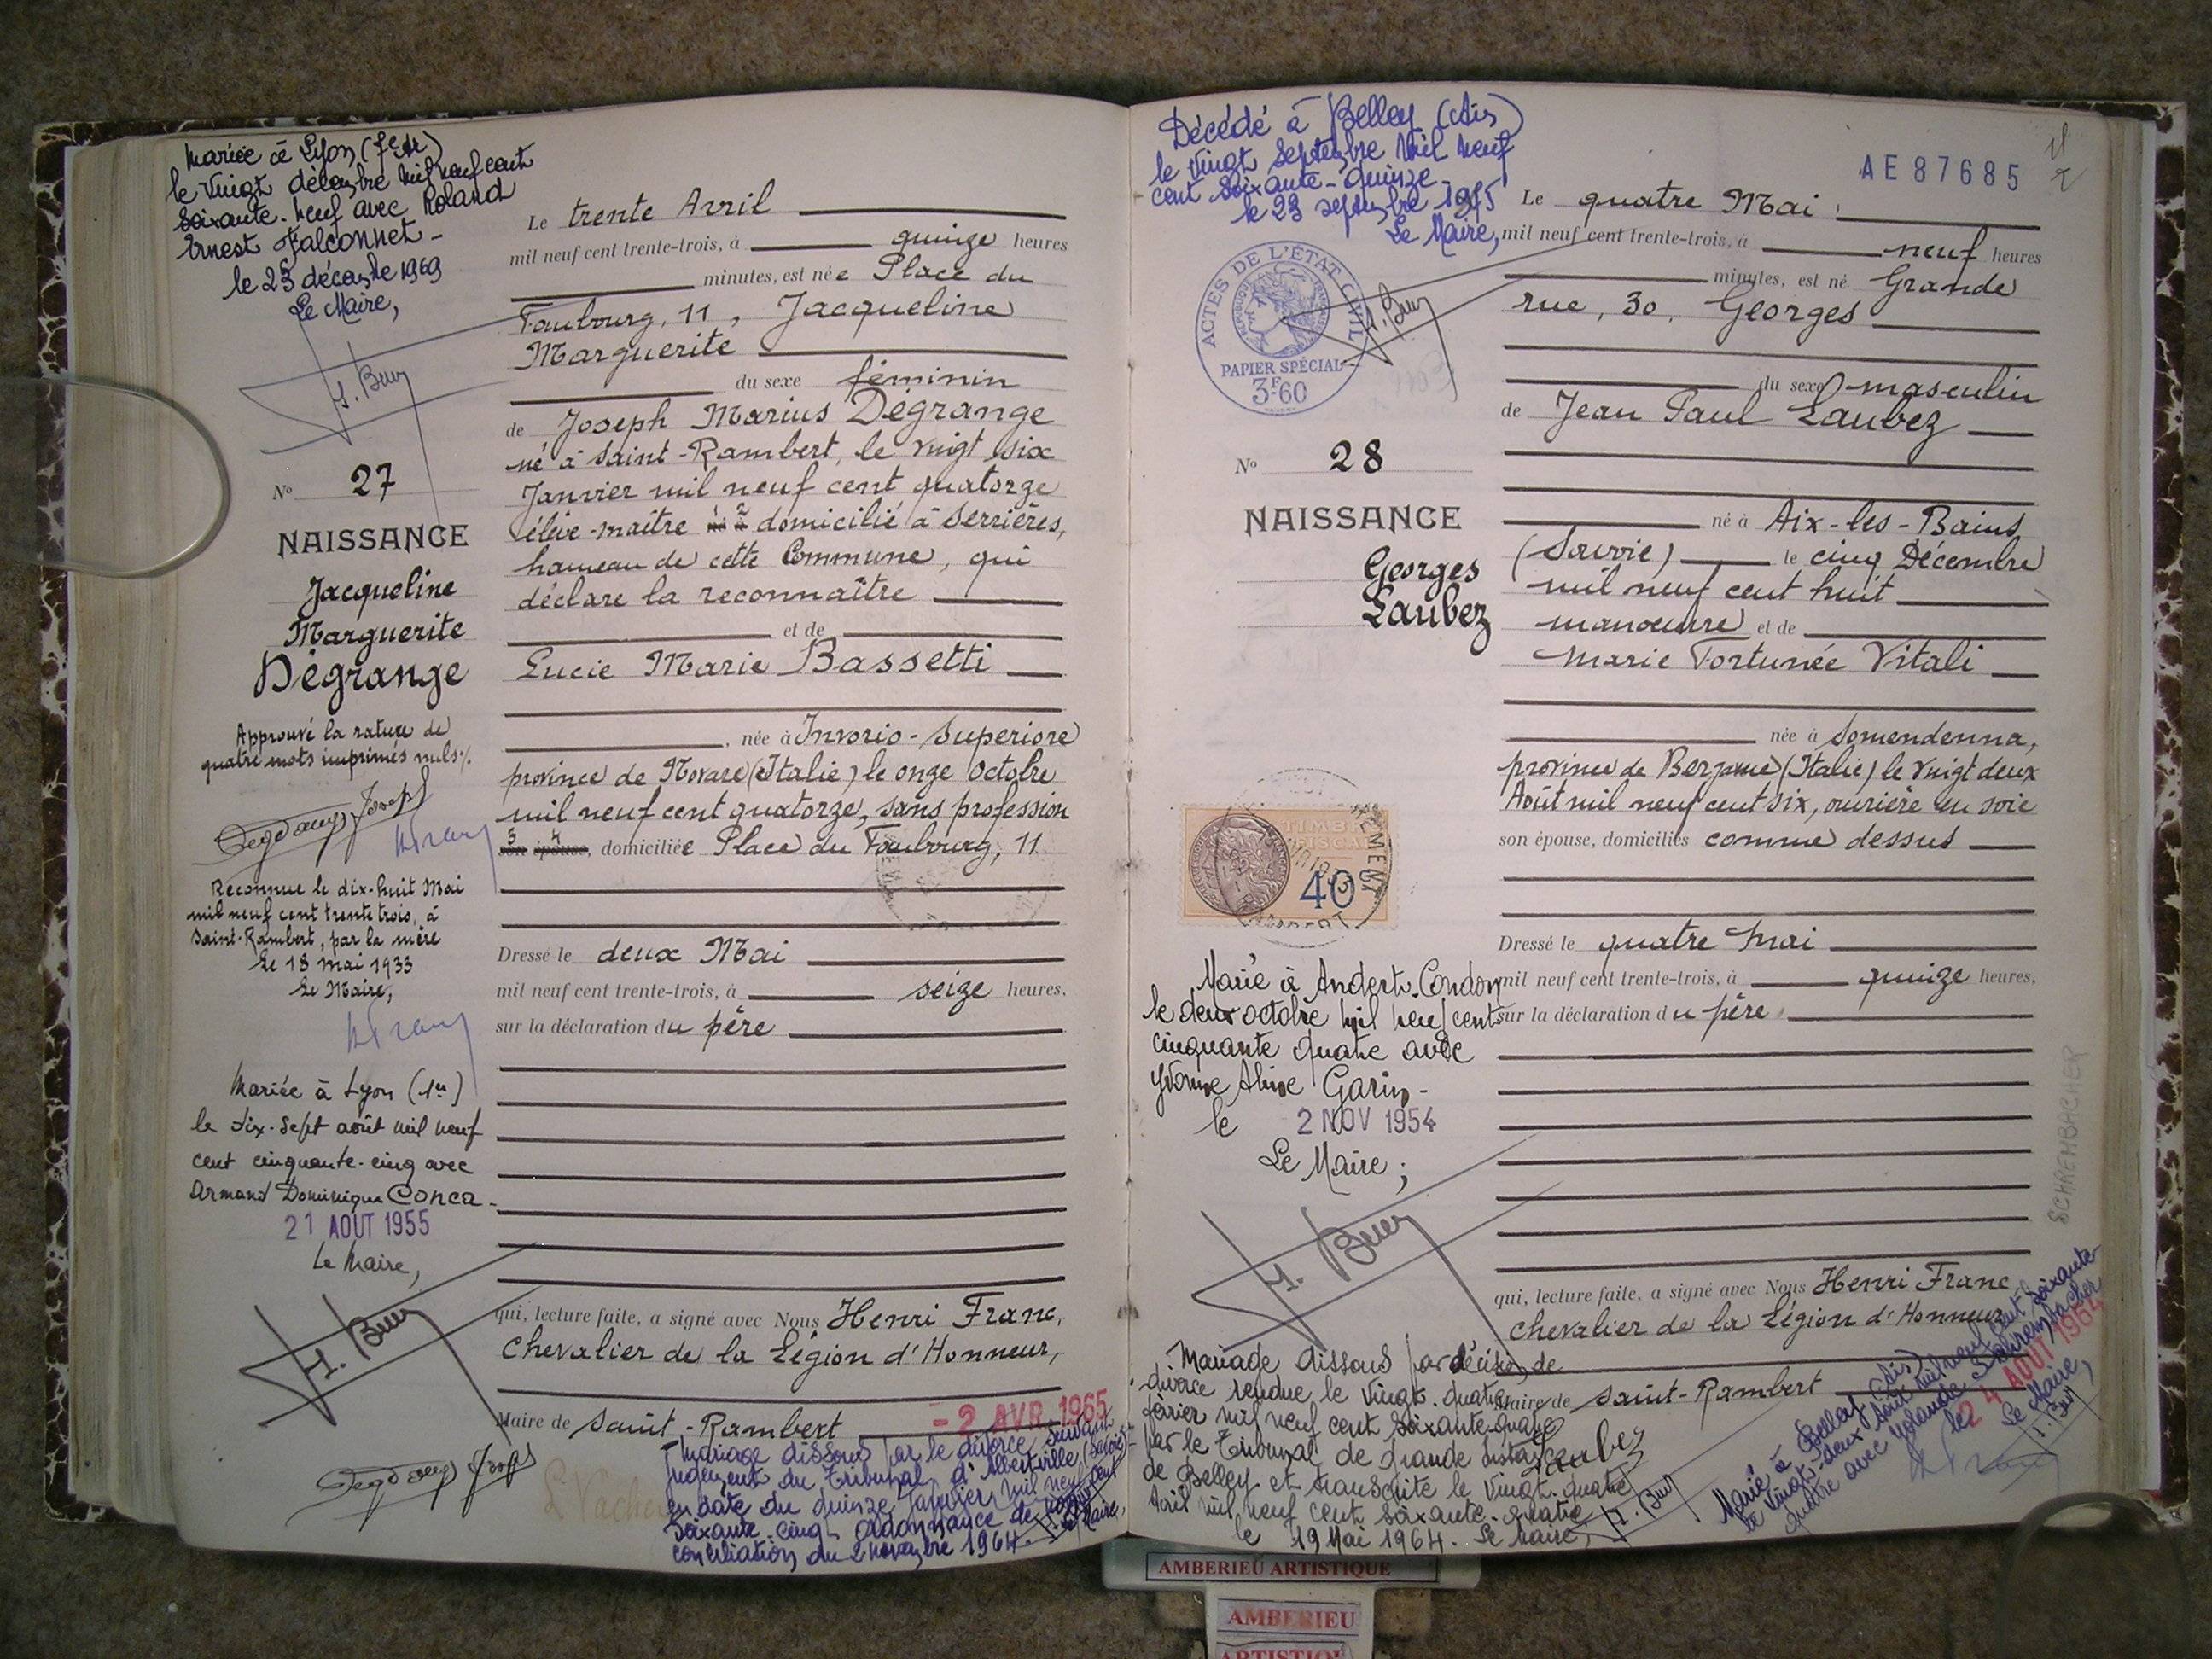 Mariée à Lyon
le vingt décembre mil neuf cent
soixante-neuf avec Roland
Ernest Falconnet -
le 23 décembre 1969
Le Maire,
N° 27
NAISSANCE
Jacqueline
Marguerite
Dégrange
Approuvé la rature de
quatre mots imprimés nuls
Reconnue le dix-huit Mai
mil neuf cent trente trois, à
Saint-Rambert, par la mère
Le 18 mai 1933
Le Maire,
Mariée à Lyon (1er)
le dix-sept août mil neuf
cent cinquante-cinq avec
Armand Dominique Conca -
21 AOUT 1955
Le Maire,
Le trente Avril
mil neuf cent trente-trois, à quinze heures
minutes, est née Place du
Faubourg, 11, Jacqueline
Marguerite
du sexe féminin
de Joseph Marius Dégrange
né à Saint-Rambert, le vingt six
Janvier mil neuf cent quatorze
élève-maître 1 2 domicilié à Serrières,
hameau de cette Commune, qui
déclare la reconnaître
et de
Lucie Marie Bassetti
, née à Invorio-Superiore
province de Novare (Italie) le onze Octobre
mil neuf cent quatorze, sans profession
3 4 son épouse, domiciliée Place du Faubourg, 11
Dressé le deux Mai
mil neuf cent trente-trois, à seize heures.
sur la déclaration du père
qui, lecture faite, a signé avec Nous Henri Franc,
Chevalier de la Légion d'Honneur,
Maire de Saint-Rambert
- 2 AVR 1965
Mariage dissous par le divorce suivant
jugement du Tribunal d'Albertville (Savoie)
en date du quinze Janvier mil neuf cent
soixante-cinq ordonnance de non
conciliation du 2 novembre 1964.
Le Maire,
Décédé à Belley (Ain)
le vingt septembre mil neuf
cent soixante-quinze -
le 23 septembre 1975
Le Maire,
AE 87685
ACTES DE L'ÉTAT CIVIL
PAPIER SPÉCIAL
3F60
N° 28
NAISSANCE
Georges
Laubez
TIMBRE
FISCAL
40
Marié à Andert-Condon
le deux octobre mil neuf cent
cinquante quatre avec
Yvonne Aline Garin -
le 2 NOV 1954
Le Maire;
Mariage dissous par décision de
divorce rendue le vingt-quatre
février mil neuf cent soixante-quatre
par le Tribunal de Grande Instance
de Belley et transcrite le vingt-quatre
Avril mil neuf cent soixante-quatre
le 19 Mai 1964. Le Maire,
Le quatre Mai
mil neuf cent trente-trois, à neuf heures
minutes, est né Grande
rue, 30, Georges
du sexe masculin
de Jean Paul Laubez
né à Aix-les-Bains
(Savoie) le cinq Décembre
mil neuf cent huit
manoeuvre et de
Marie Fortunée Vitali
née à Somendenna,
province de Bergame (Italie) le vingt deux
Août mil neuf cent six, ouvrière en soie
son épouse, domiciliés comme dessus
Dressé le quatre Mai
mil neuf cent trente-trois, à quinze heures.
sur la déclaration du père
qui, lecture faite, a signé avec Nous Henri Franc
Chevalier de la Légion d'Honneur
Maire de Saint-Rambert
Laubez
Marié à Belley (Ain)
le vingt-deux août mil neuf cent soixante
quatre avec Yolande Schrembacher
le 24 AOUT 1964
Le Maire,
SCHREMBACHER
AMBERIEU ARTISTIQUE
AMBERIEU
ARTISTIQUE